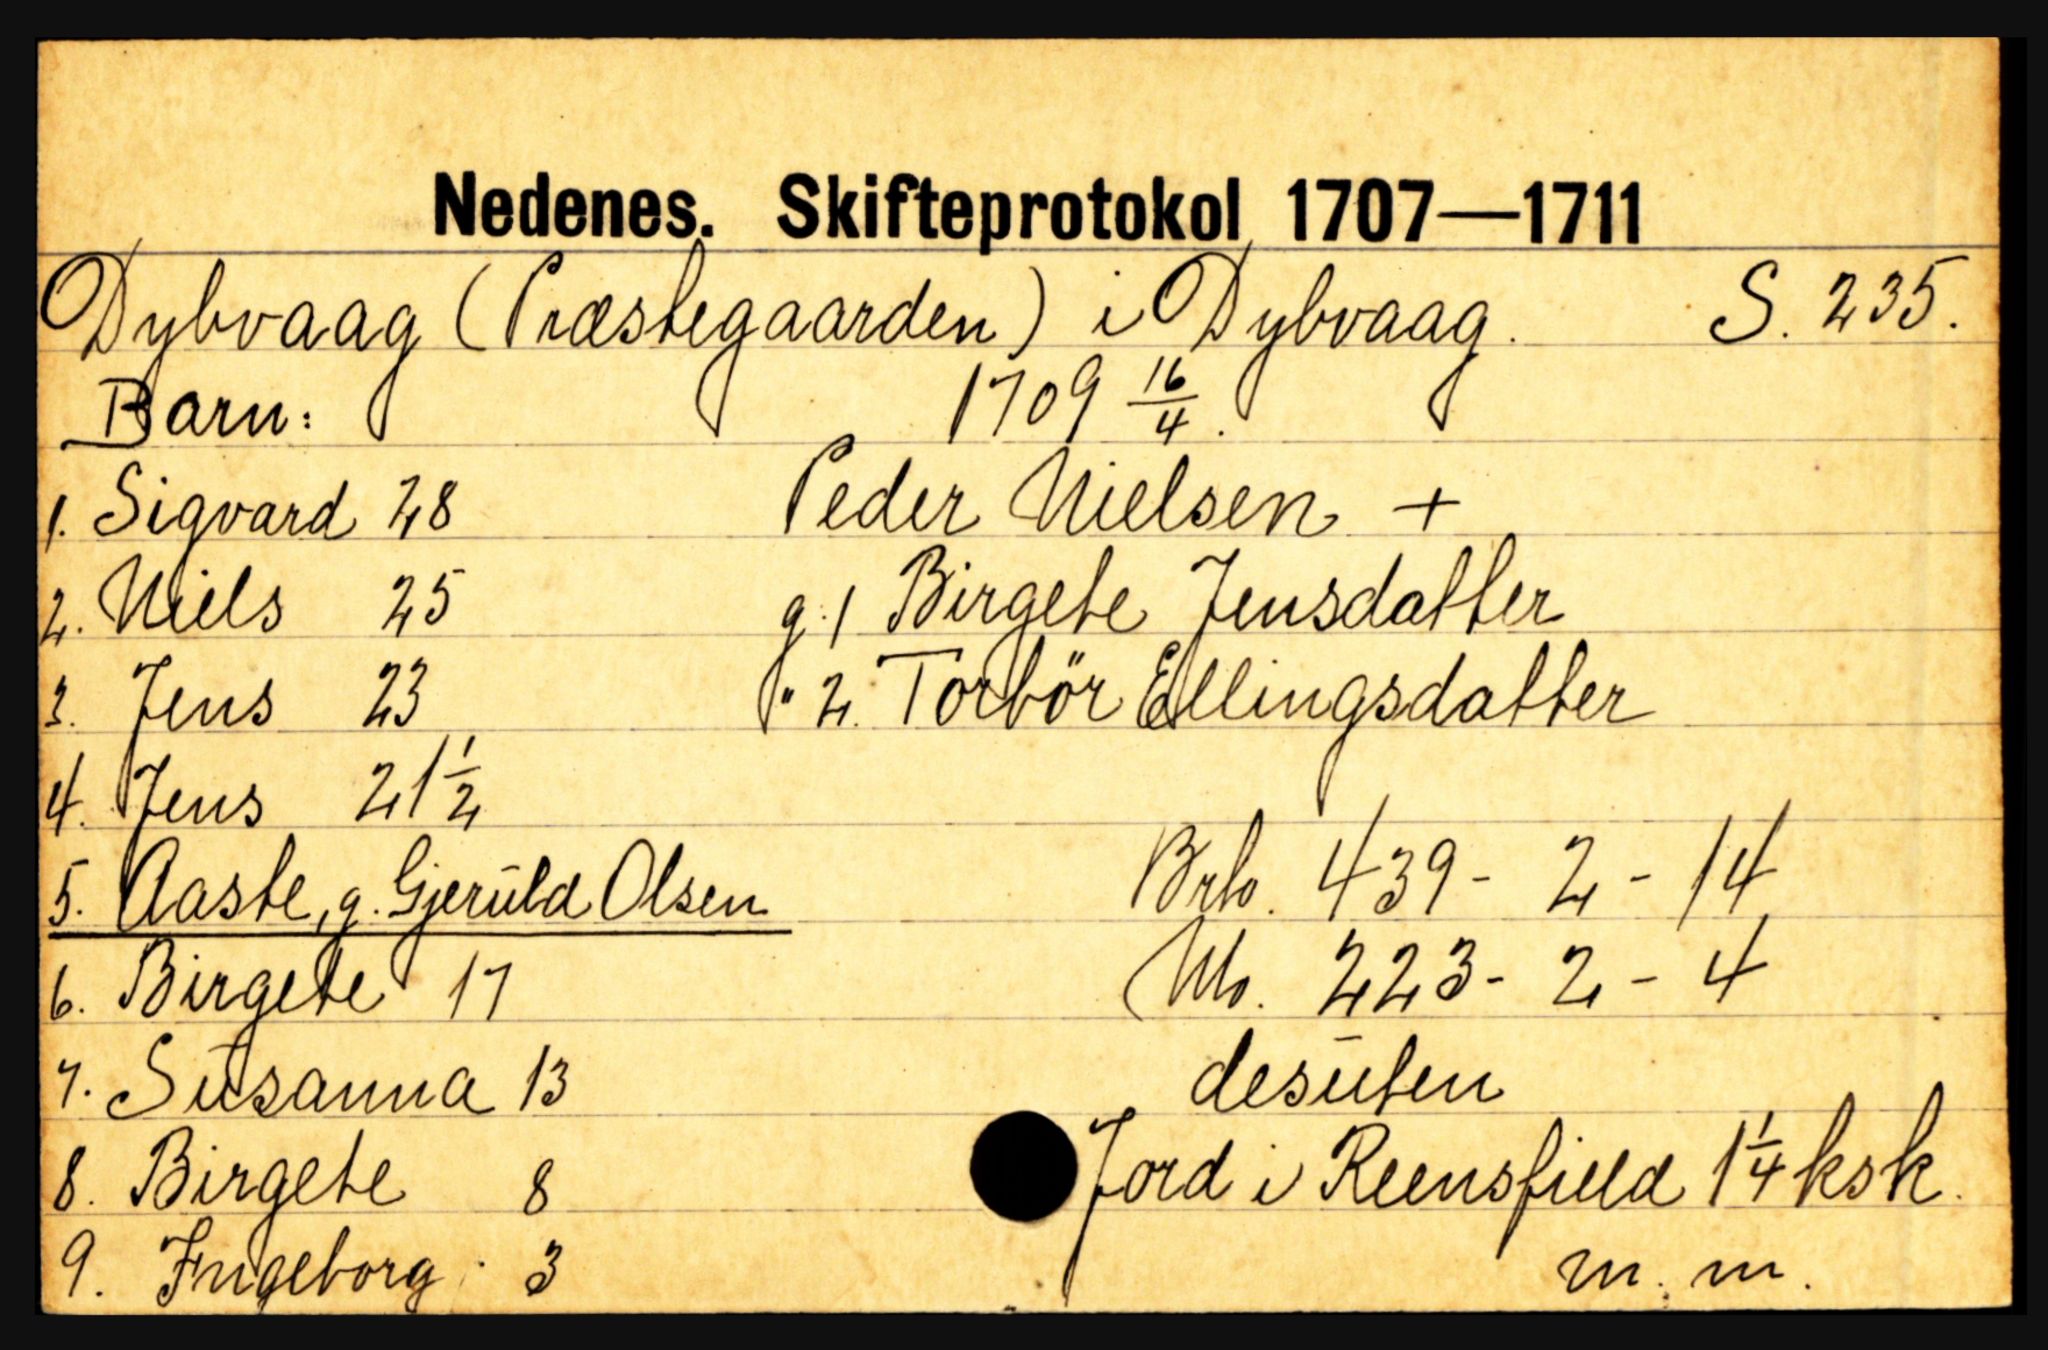 Nedenes. Skifteprotokol 1707—1711
Dybvaag (Præstegaarden) i Dybvaag. S. 235.
Barn: 1709 16/4.
1. Sigvard 28 Peder Nielsen +
2. Niels 25 g. 1 Birgete Jensdatter
3. Jens 23 " 2. Torbör Ellingsdatter
4. Jens 21 1/2
5. Aaste, g. Gjeruld Olsen Brto. 439 - 2 - 14
6. Birgete 17 Nto. 223 - 2 - 4
7. Susanna 13 desuten
8. Birgete 8 Jord i Reensfield 1 1/4 ksk.
9. Ingeborg 3 m. m.